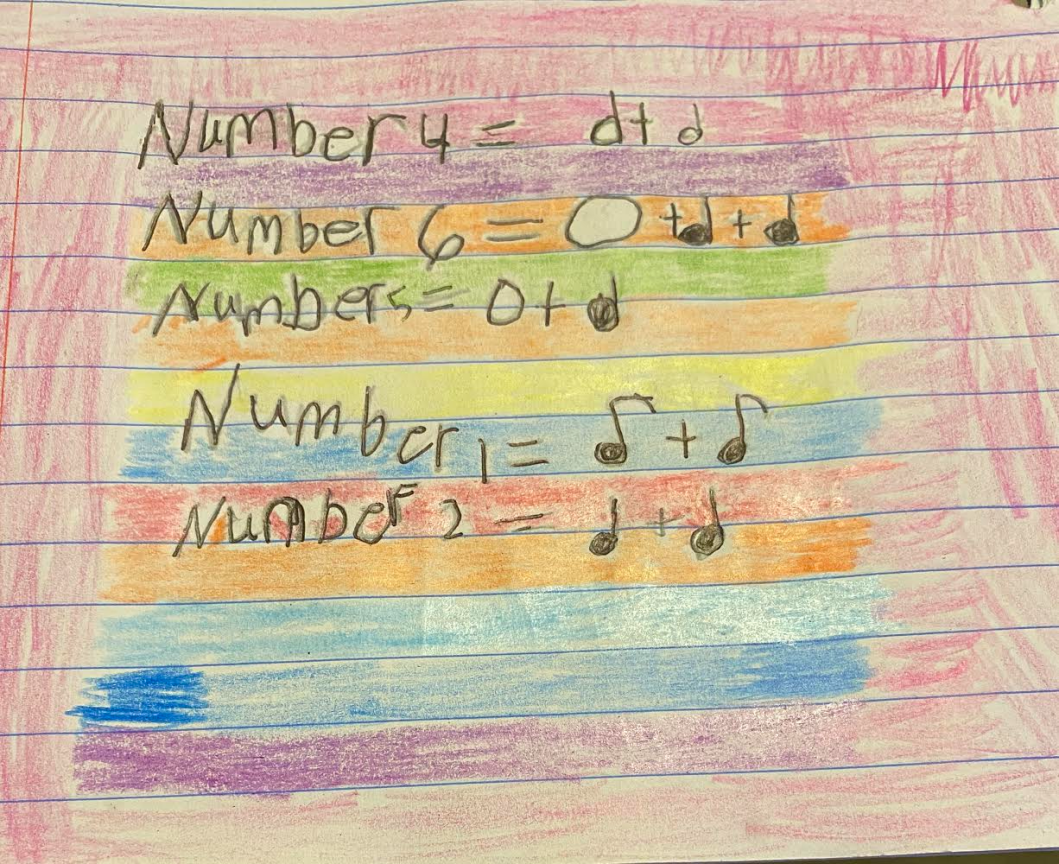 Number 4 = 𝅗𝅥 + 𝅗𝅥
Number 6 = 𝅝 + ♩ + ♩
Number 5 = 𝅝 + ♩
Number 1 = ♪ + ♪
Number 2 = ♩ + ♩